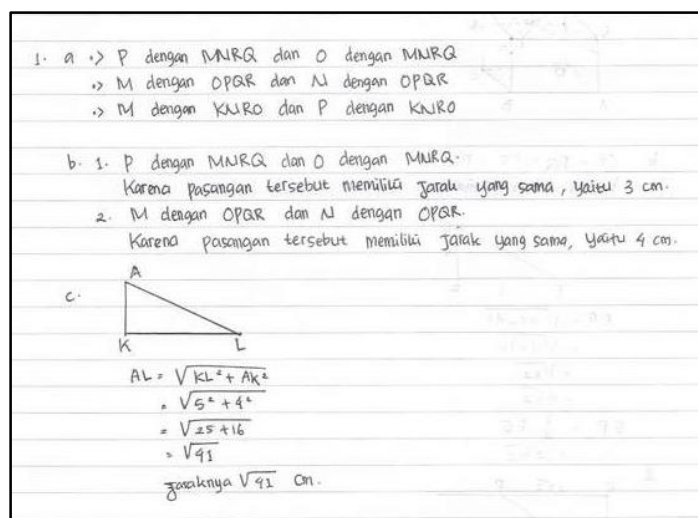 1. a .> P dengan MNRQ dan O dengan MNRQ
.> M dengan OPQR dan N dengan OPQR
.> M dengan KNRO dan P dengan KNRO
b. 1. P dengan MNRQ dan O dengan MNRQ.
Karena pasangan tersebut memiliki jarak yang sama, yaitu 3 cm.
2. M dengan OPQR dan N dengan OPQR.
Karena pasangan tersebut memiliki jarak yang sama, yaitu 4 cm.
c.
A
K L
AL = √KL² + AK²
= √5² + 4²
= √25 + 16
= √41
Jaraknya √41 cm.